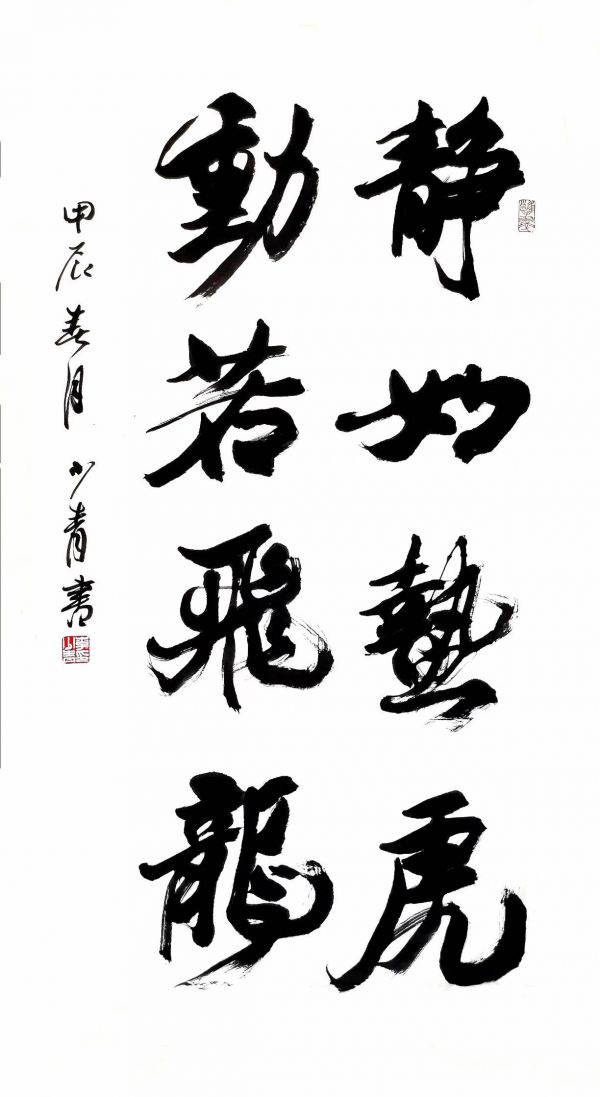 静如蟄虎
動若飛龍
甲辰春月 少青書